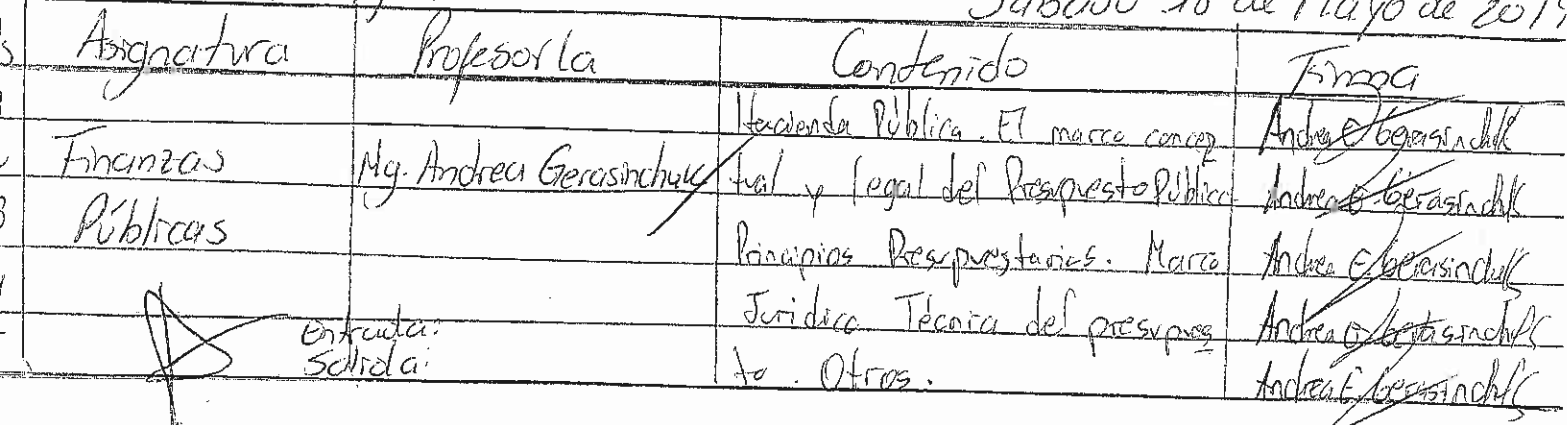 Sábado 18 de Mayo de 2019
Asignatura Profesor/a Contenido Firma
Hacienda Pública. El marco concep Andrea E Gerasinchuk
Finanzas Mg. Andrea Gerasinchuk tual y legal del Presupuesto Público Andrea E Gerasinchuk
Públicas Principios Presupuestarios. Marco Andrea E Gerasinchuk
Jurídico Técnica del presupues Andrea E Gerasinchuk
Entrada:
Salida: to. Otros. Andrea E Gerasinchuk